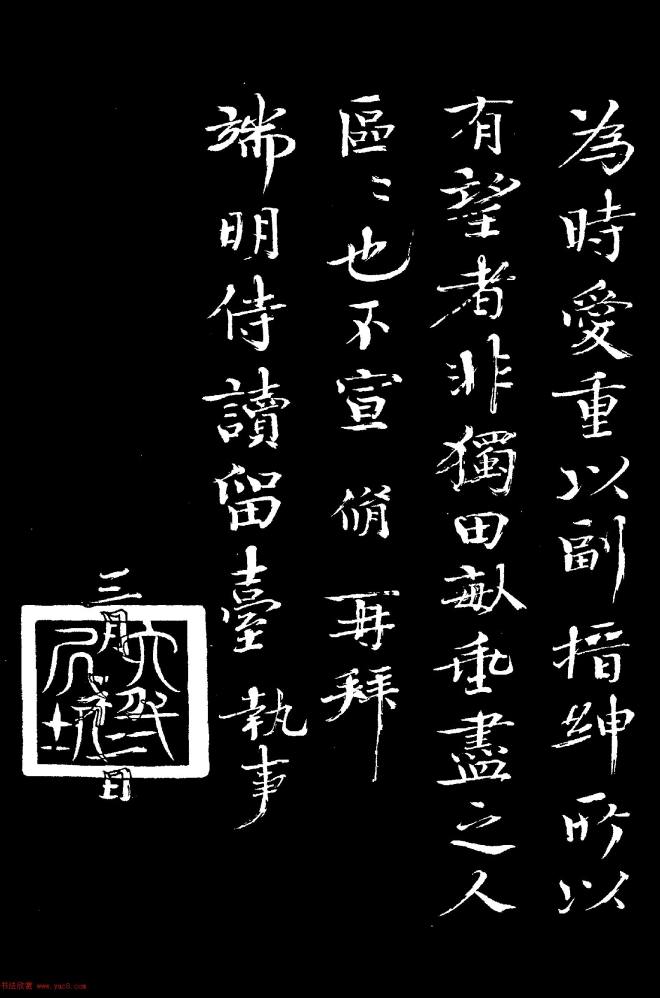 為時愛重以副搢紳所以
有望者非獨田畝垂盡之人
區〻也不宣 脩 再拜
端明侍讀留臺 執事
三月 日
书法欣赏 www.yac8.com